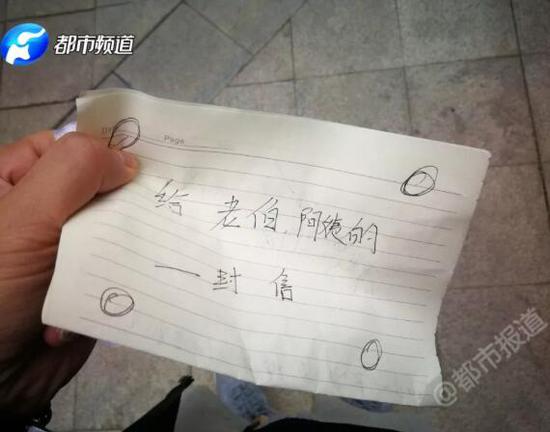 都市频道
Page
给 老伯、阿德的
一封信
@都市报道